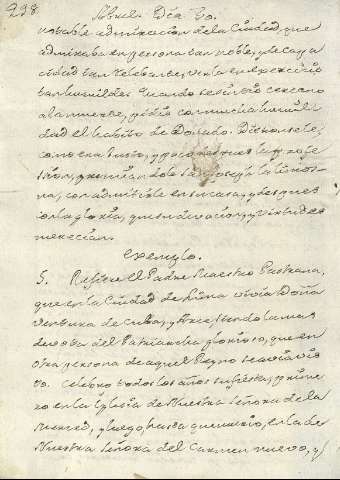 298
Sobre el Dia To.
notable admiracion de la Ciudad, que
admiraba en persona tan noble, y de cap a
cidad tan relebante, verla en exercicio
tan humilde. Quando se sintió cercano
a la muerte, pidió con mucha humil
dad el habito de Donado. Dieronsele,
como era justo, y poco despues la profe
sion, premiandole San Joseph la limos
na, con admitirle en su casa, y despues
en la gloria, que su devocion, y virtudes
merecian.
Exemplo.
5. Refiere el Padre Maestro Pastrana,
que en la Ciudad de Lima vivia Doña
Ventura de Cuba, y Arce, siendo la mas
devota del Patriarcha glorioso, que en
otra persona de aquel Reyno se avia vis
to. Celebró todos los años su fiesta, prime
ro en la Iglesia de Nuestra Señora de la
Merced, y luego, hasta que murió, en la de
Nuestra Señora del Carmen nuevo, y